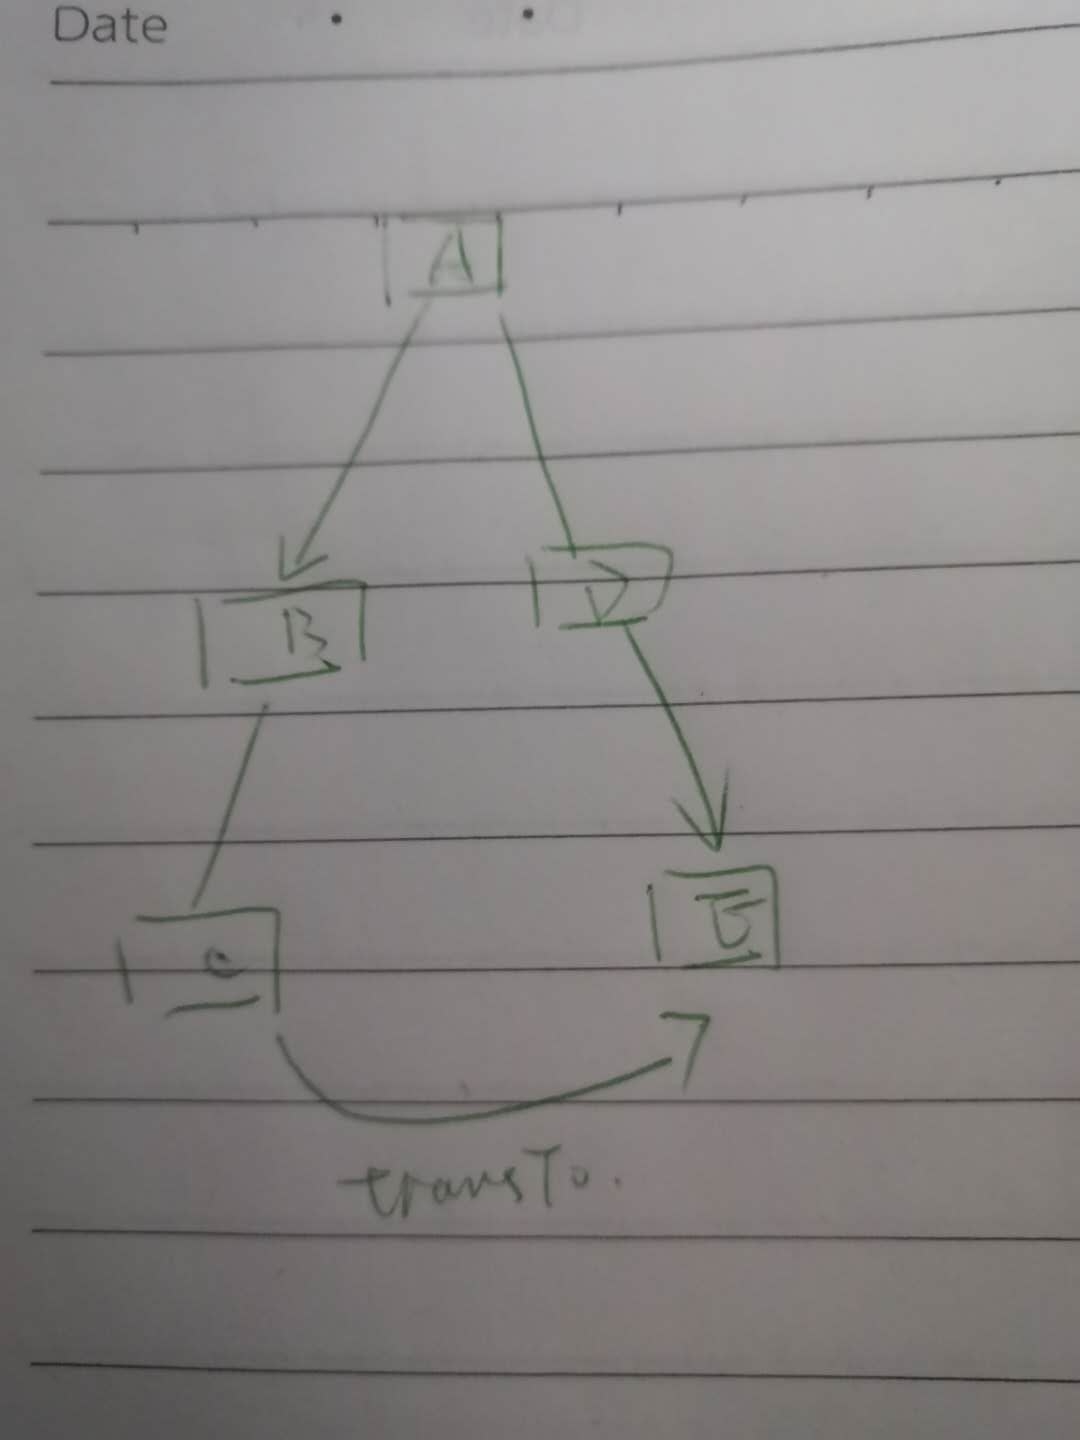 Date
A
B
D
C
E
transTo.